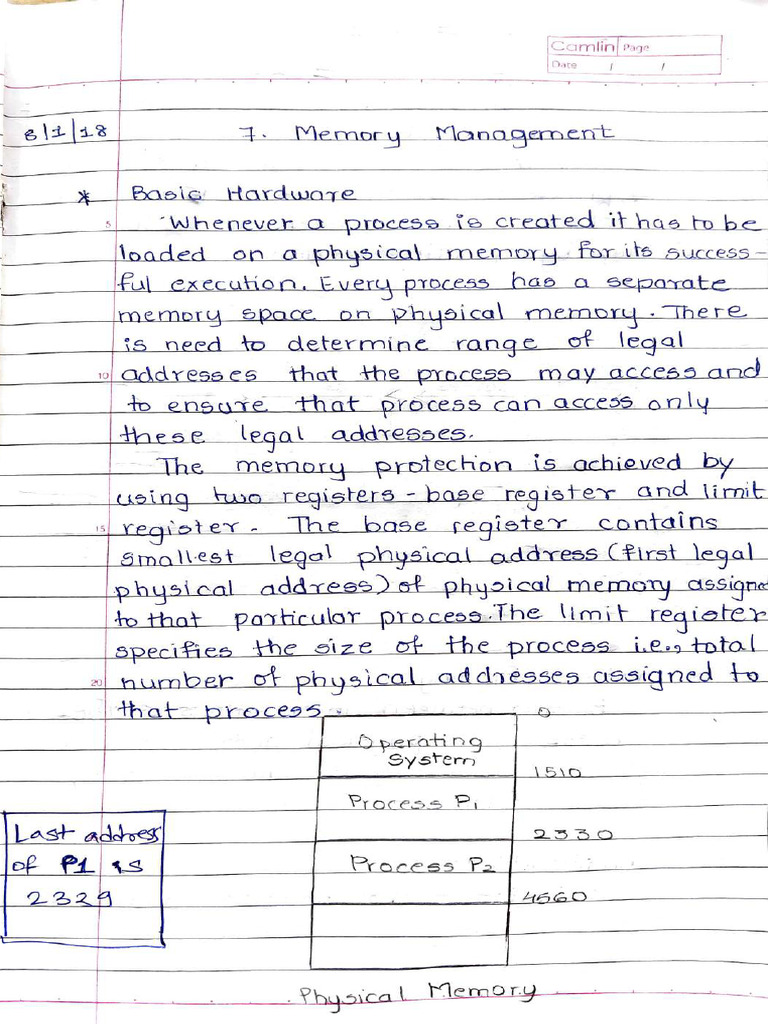 Camlin Page
Date / /
8/1/18 7. Memory Management
* Basic Hardware
5 Whenever a process is created it has to be
loaded on a physical memory for its success-
ful execution. Every process has a separate
memory space on physical memory. There
is need to determine range of legal
10 addresses that the process may access and
to ensure that process can access only
these legal addresses.
The memory protection is achieved by
using two registers - base register and limit
15 register. The base register contains
smallest legal physical address (first legal
physical address) of physical memory assigne
to that particular process. The limit register
specifies the size of the process i.e., total
20 number of physical addresses assigned to
that process.
0
Operating
System
1510
Process P1
2330
Process P2
4560
Last address
of P1 is
2329
Physical Memory